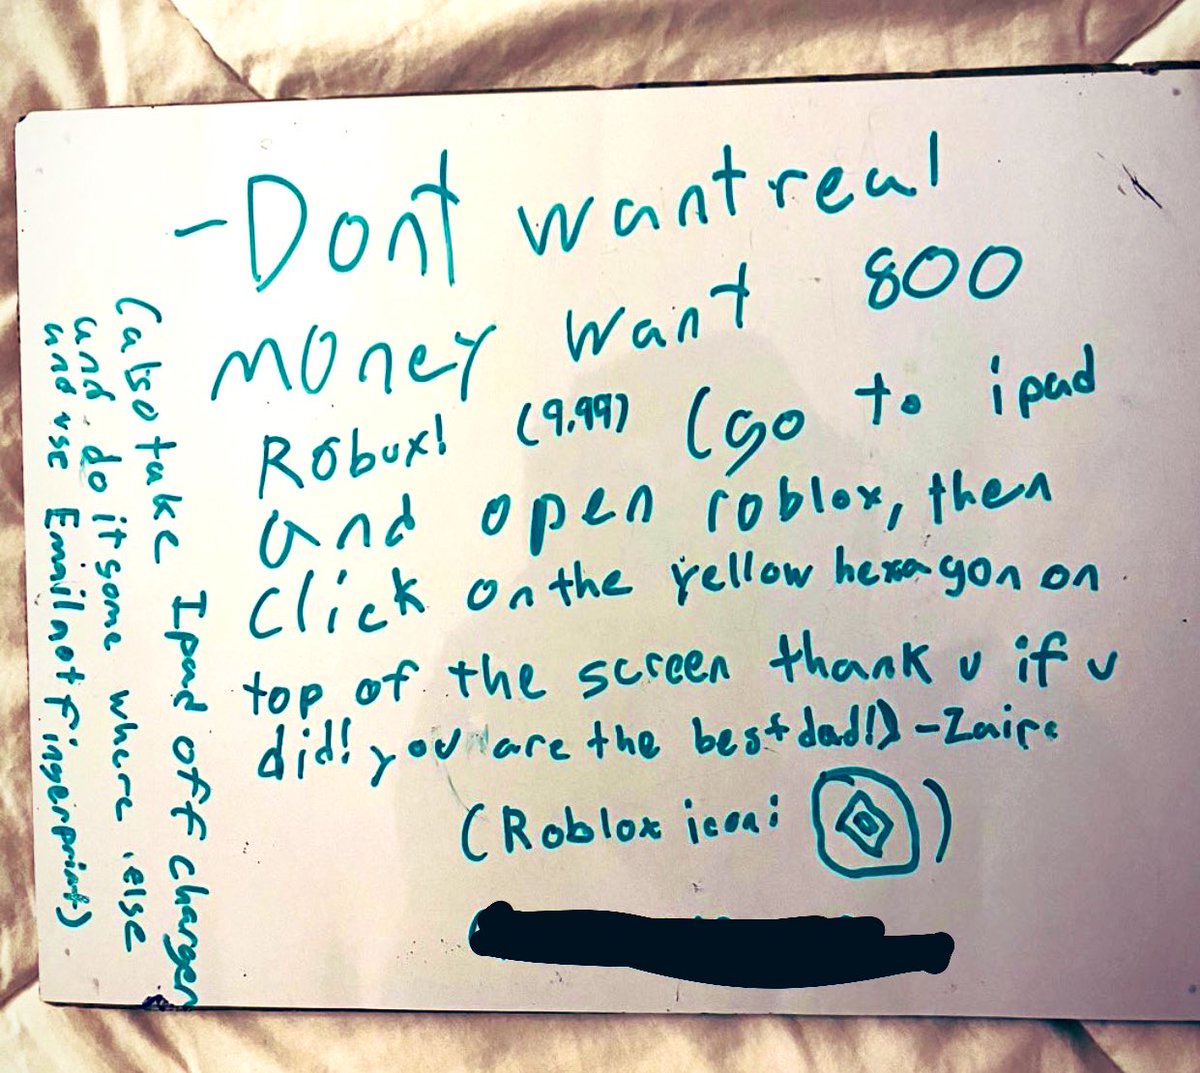 -Dont want real
money want 800
Robux! (9.99) (go to ipad
and open roblox, then
click on the yellow hexagon on
top of the screen thank u if u
did! you are the best dad!) -Zaire
(Roblox icon: )
(also take Ipad off charger
and do it some where else
and use Email not fingerprint)